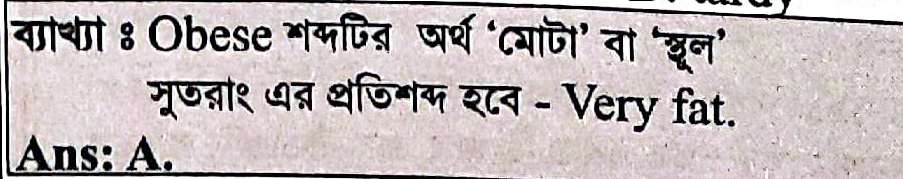 ব্যাখ্যা ঃ Obese শব্দটির অর্থ ‘মোটা’ বা ‘স্থূল’
সুতরাং এর প্রতিশব্দ হবে - Very fat.
Ans: A.